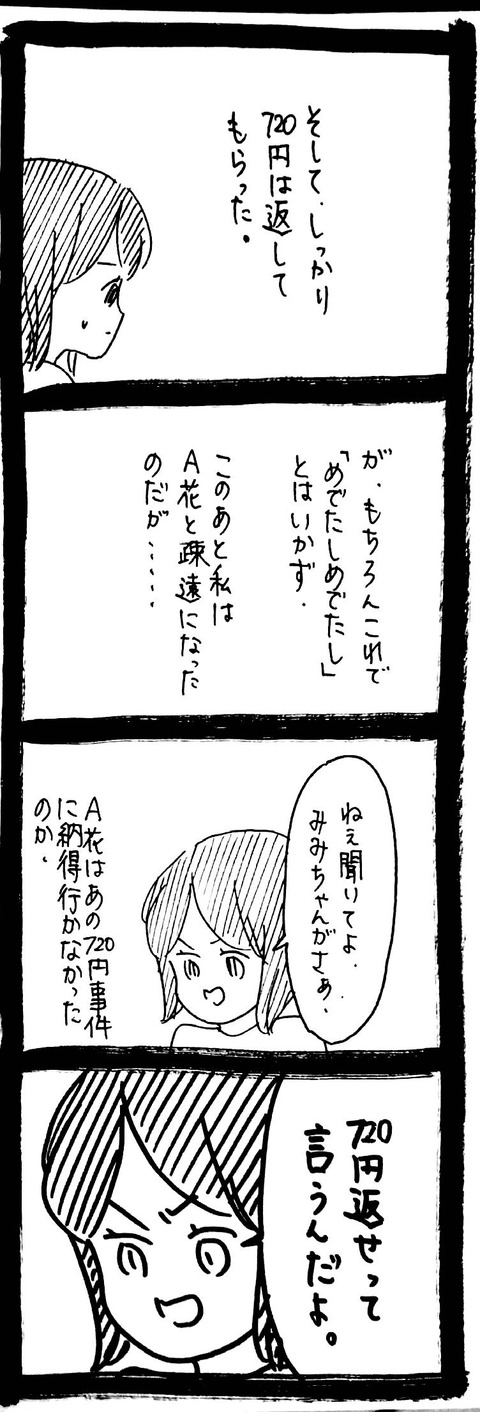 そして、しっかり
720円は返して
もらった。
が、もちろんこれで
「めでたしめでたし」
とはいかず、
このあと私は
A花と疎遠になった
のだが……
ねぇ聞いてよ、
みみちゃんがさぁ、
A花はあの720円事件
に納得行かなかった
のか、
720円返せって
言うんだよ。